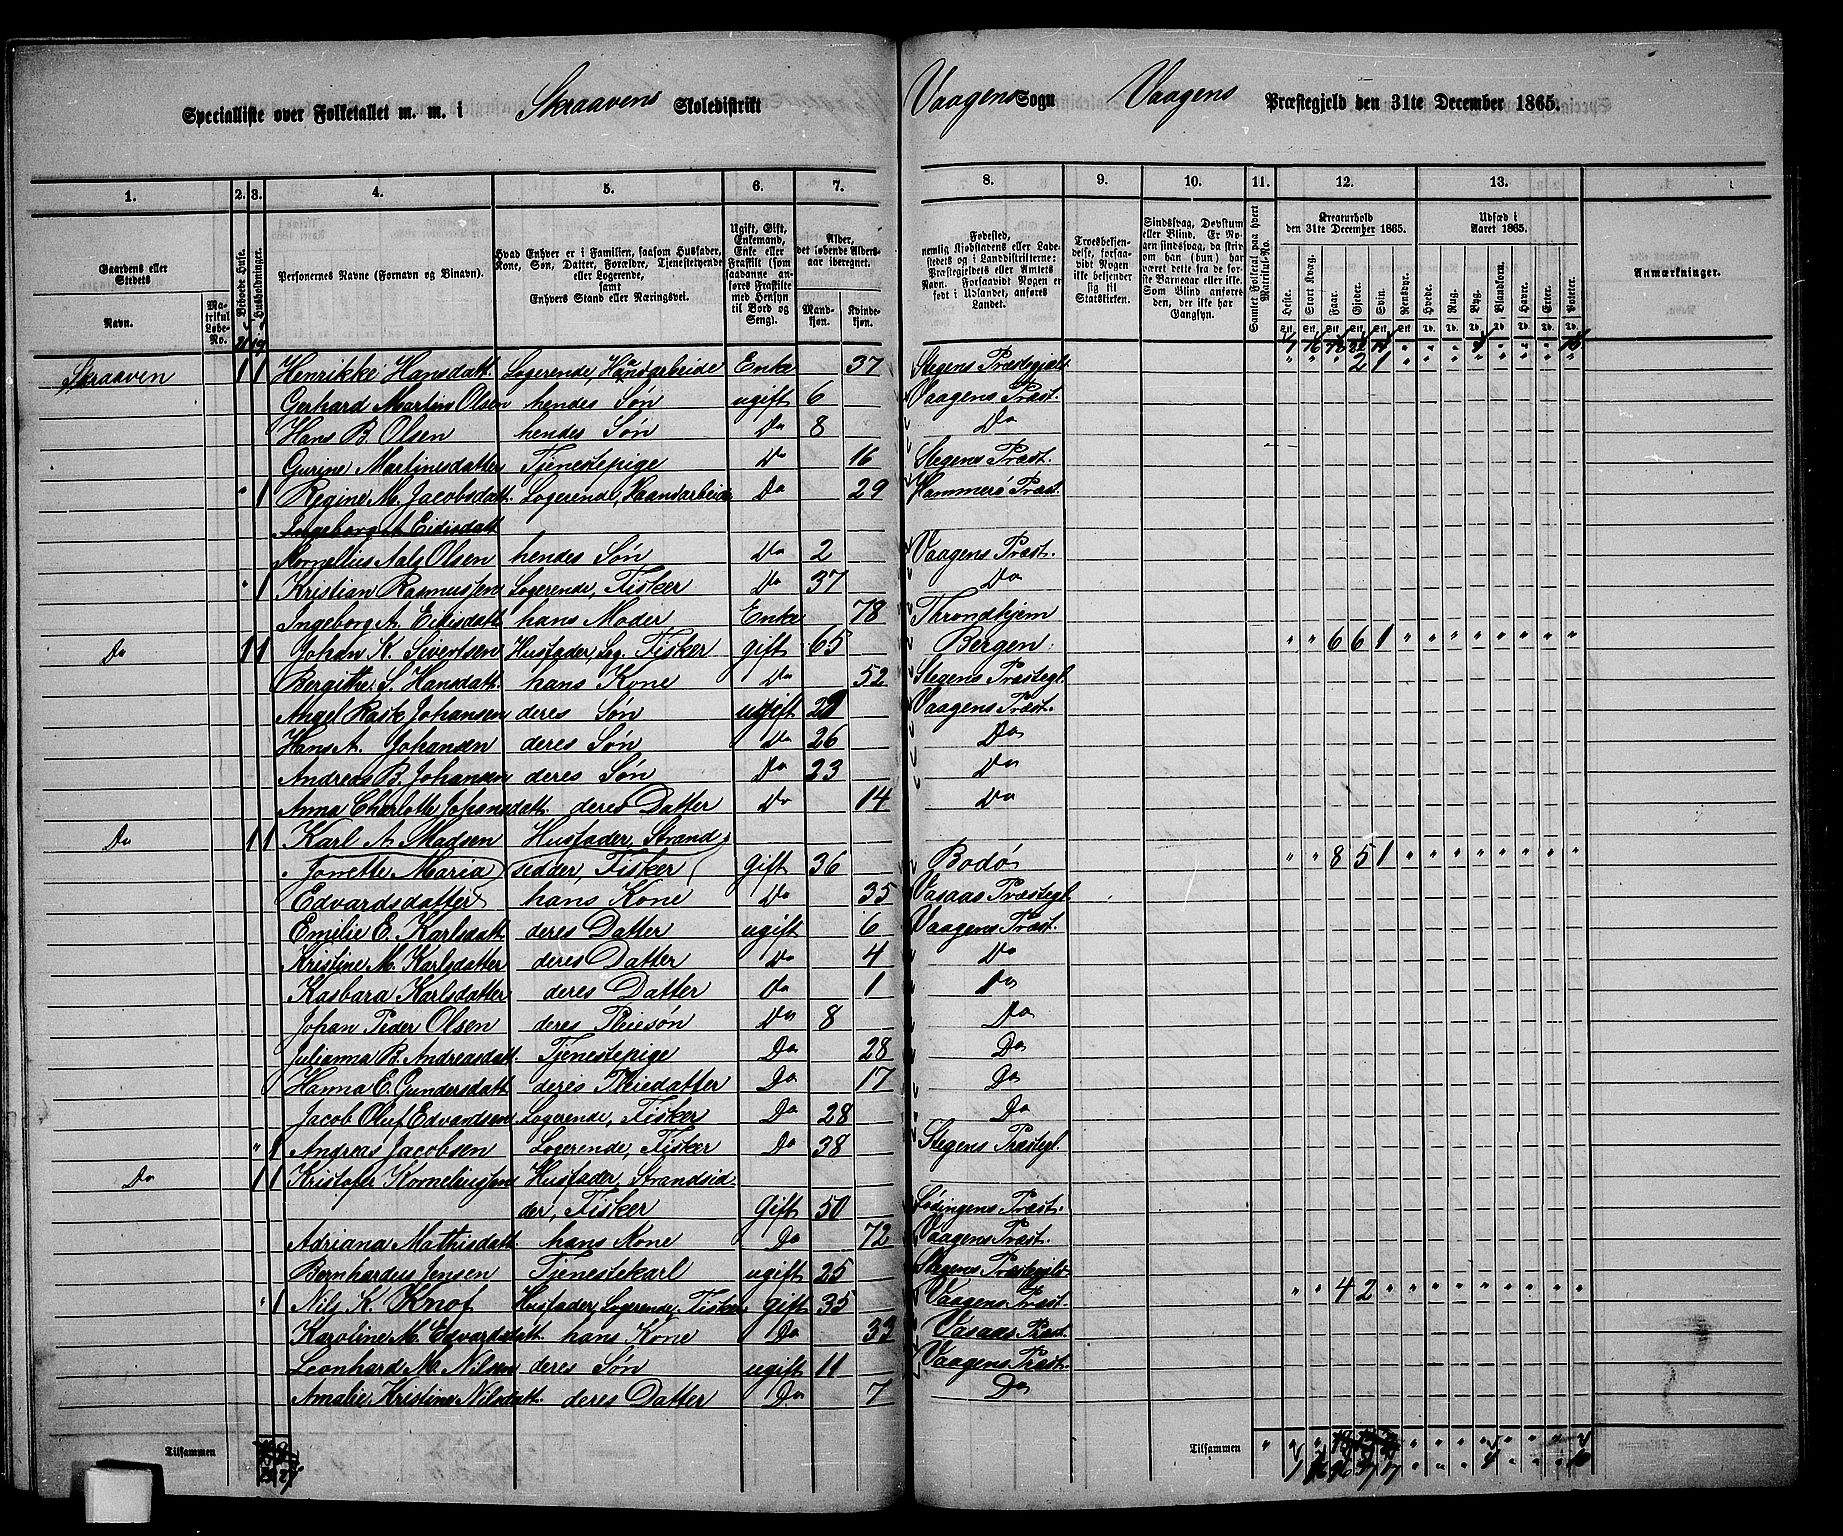 Specialliste over Folketallet m. m. i Skraavens Skoledistrikt Vaagens Sogn Vaagens Præstegjeld den 31te December 1865.
1. 2. 3. 4. 5. 6. 7. 8. 9. 10. 11. 12. 13.
Gaardens eller Stedets Navn. Matrikul Løbe-No. Beboede Huse. Husholdninger. Personernes Navne (Fornavn og Binavn). Hvad Enhver er i Familien, saasom Husfader, Kone, Søn, Datter, Forældre, Tjenestetyende eller Logerende, samt Enhvers Stand eller Næringsvei. Ugift, Gift, Enkemand, Enke eller Fraskilt (som saadanne anføres Fraskilte med Hensyn til Bord og Seng). Alder, det løbende Alders-aar iberegnet. Mandkjøn. Kvindekjøn.
Fødested, nemlig Kjøbstadens eller Ladestedets og i Landdistrikterne: Præstegjeldets eller Amtets Navn. Forsaavidt Nogen er født i Udlandet, anføres Landet. Troesbekjendelse, forsaavidt Nogen ikke bekjender sig til Statskirken. Sindssvag, Døvstum eller Blind. Samlet Folketal paa hvert Matrikul-No. Kreaturhold den 31te December 1865. Udsæd i Aaret 1865. Anmærkninger.
Heste. Stort Kvæg. Faar. Gjeder. Svin. Rensdyr. Hvede. Rug. Byg. Blandkorn. Havre. Erter. Poteter.
Skraaven 1 1 Henrikke Hansdatt. Logerende, Haandarbeide Enke 37 Stegens Præstegjeld " " " 2 1
Gerhard Martin Olsen hendes Søn ugift 6 Vaagens Præst.
Hans B. Olsen hendes Søn Do 8 Do
Gurine Martinesdatter Tjenestepige Do 16 Stegens Præst.
" 1 Regine M. Jacobsdatt. Logerend, Haandarbeide Do 29 Hammerø Præst
Ingeborg A Eidisdatt
Kornelius Aalg Olsen hendes Søn Do 2 Vaagens Præst.
" 1 Kristian Rasmussen Logerende, Fisker Do 37 Do
Ingeborg A. Eidisdatt hans Moder Enke 78 Throndhjem
Do 1 1 Johan K. Sivertsen Husfader, Log. Fisker gift 65 Bergen. " " 6 6 1 " " " " " " " "
Bergithe S. Hansdatt. hans Kone Do 52 Stegens Præstegl.
Angel Rask Johansen deres Søn ugift 29 Vaagens Præst.
Hans A. Johansen deres Søn Do 26 Do
Andreas B. Johansen deres Søn Do 23 Do
Anna Charlotte Johansdatt. deres Datter Do 14 Do
Do 1 1 Karl A. Madsen Husfader, Strand
Jonette Maria sidder, Fisker Gift 36 Bodø " " 8 5 1 " " " " " " " "
Edvardsdatter hans Kone Do 35 Vasaas Præstegl.
Emelie E. Karlsdatt. deres Datter ugift 6 Vaagens Præst.
Kristine M. Karlsdatter deres Datter Do 4 Do
Kasbara Karlsdatter deres Datter Do 1 Do
Johan Peder Olsen deres Pleiesøn Do 8 Do
Julianna B. Andreasdatt. Tjenestepige Do 28 Do
Hanna E. Gundersdatt. deres Pleiedatter Do 17 Do
Jacob Oluf Edvardsen Logerende, Fisker Do 28 Do
" 1 Andreas Jacobsen Logerende, Fisker Do 38 Stegens Præstegl.
Do 1 1 Kristofer Korneliussen Husfader, Strandsid-
der, Fisker Gift 50 Lødingens Præst.
Adriana Mathisdatt. hans Kone Do 72 Vaagens Præst.
Bernhardus Jensen Tjenestekarl ugift 25 Stegens Præstegjeld
" 1 Nils K. Knof Husfader, Logerende, Fisker gift 35 Vaagens Præst. " " 4 2 " " " " " " " " "
Karoline M. Edvardsdatt. hans Kone Do 33 Vasaas Præst.
Leonhard M. Nilsen deres Søn ugift 11 Vaagens Præst.
Amalie Kristine Nilsdatt. deres Datter Do 7 Do
Tilsammen
Tilsammen